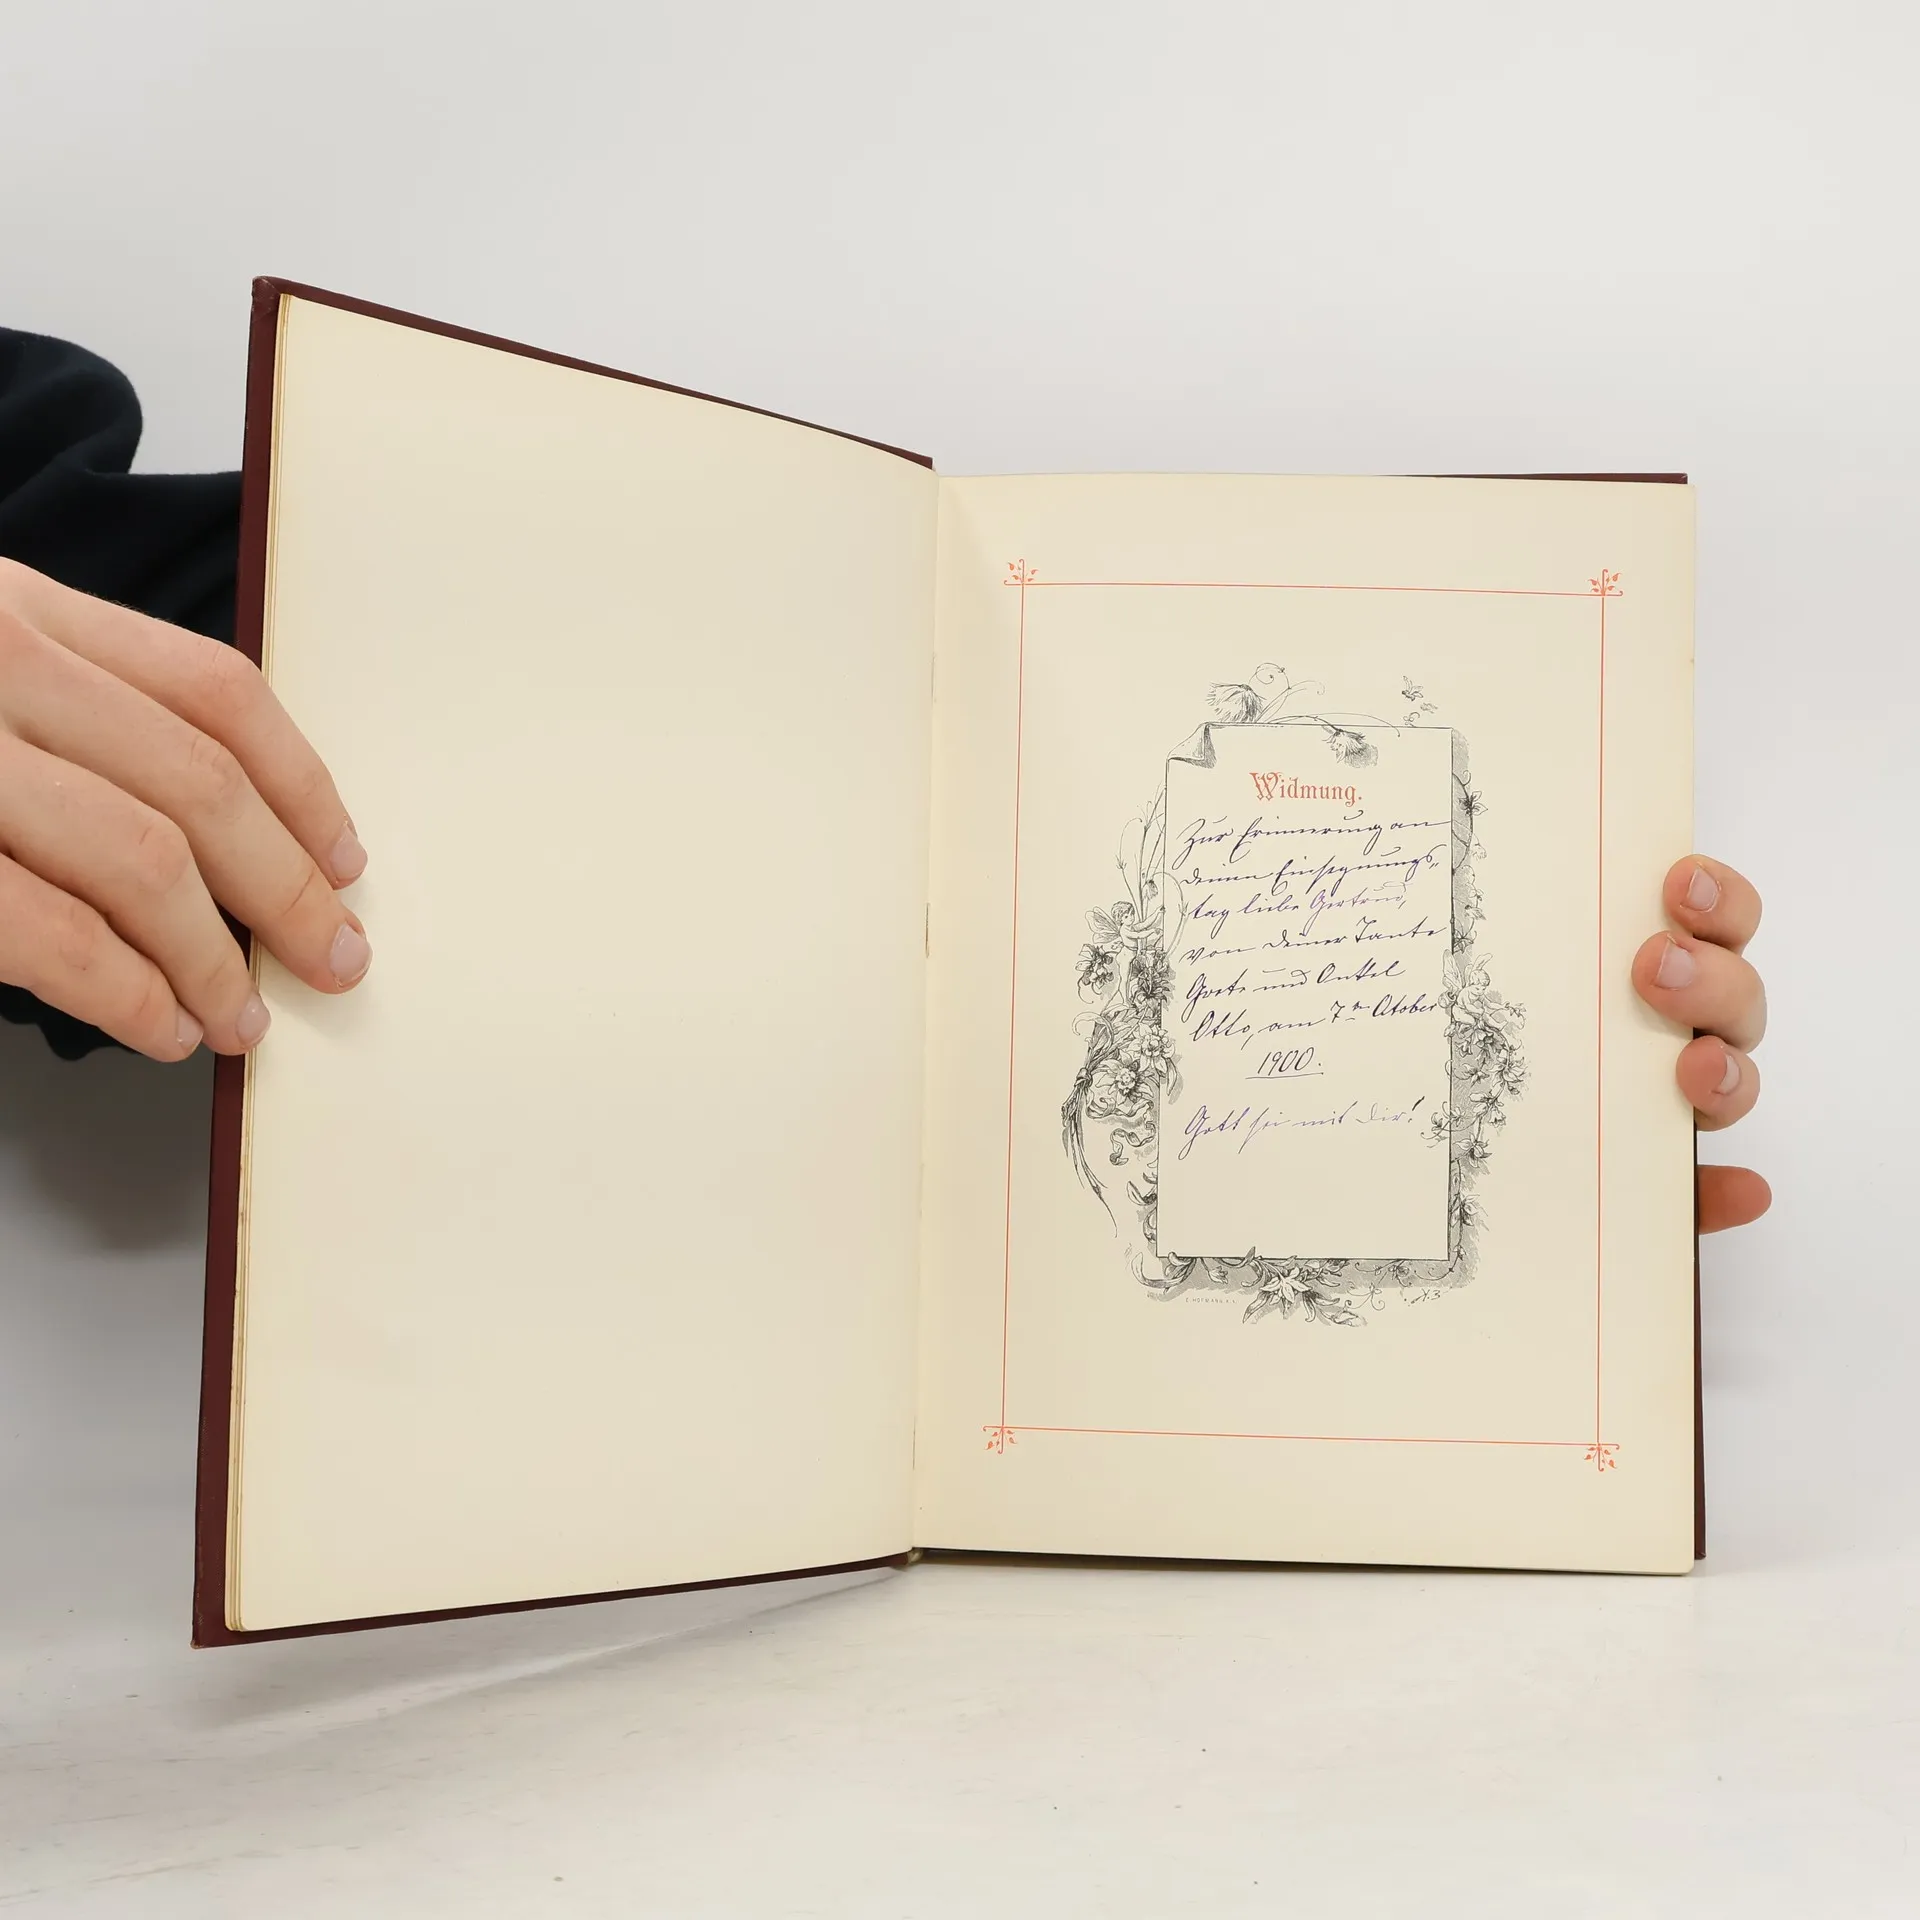 Widmung.
Zur Erinnerung an
deinen Einsegnungs-
tag liebe Gertrud,
von deiner Tante
Grete und Onkel
Otto, am 7ten Otober
1900.
Gott sei mit Dir!